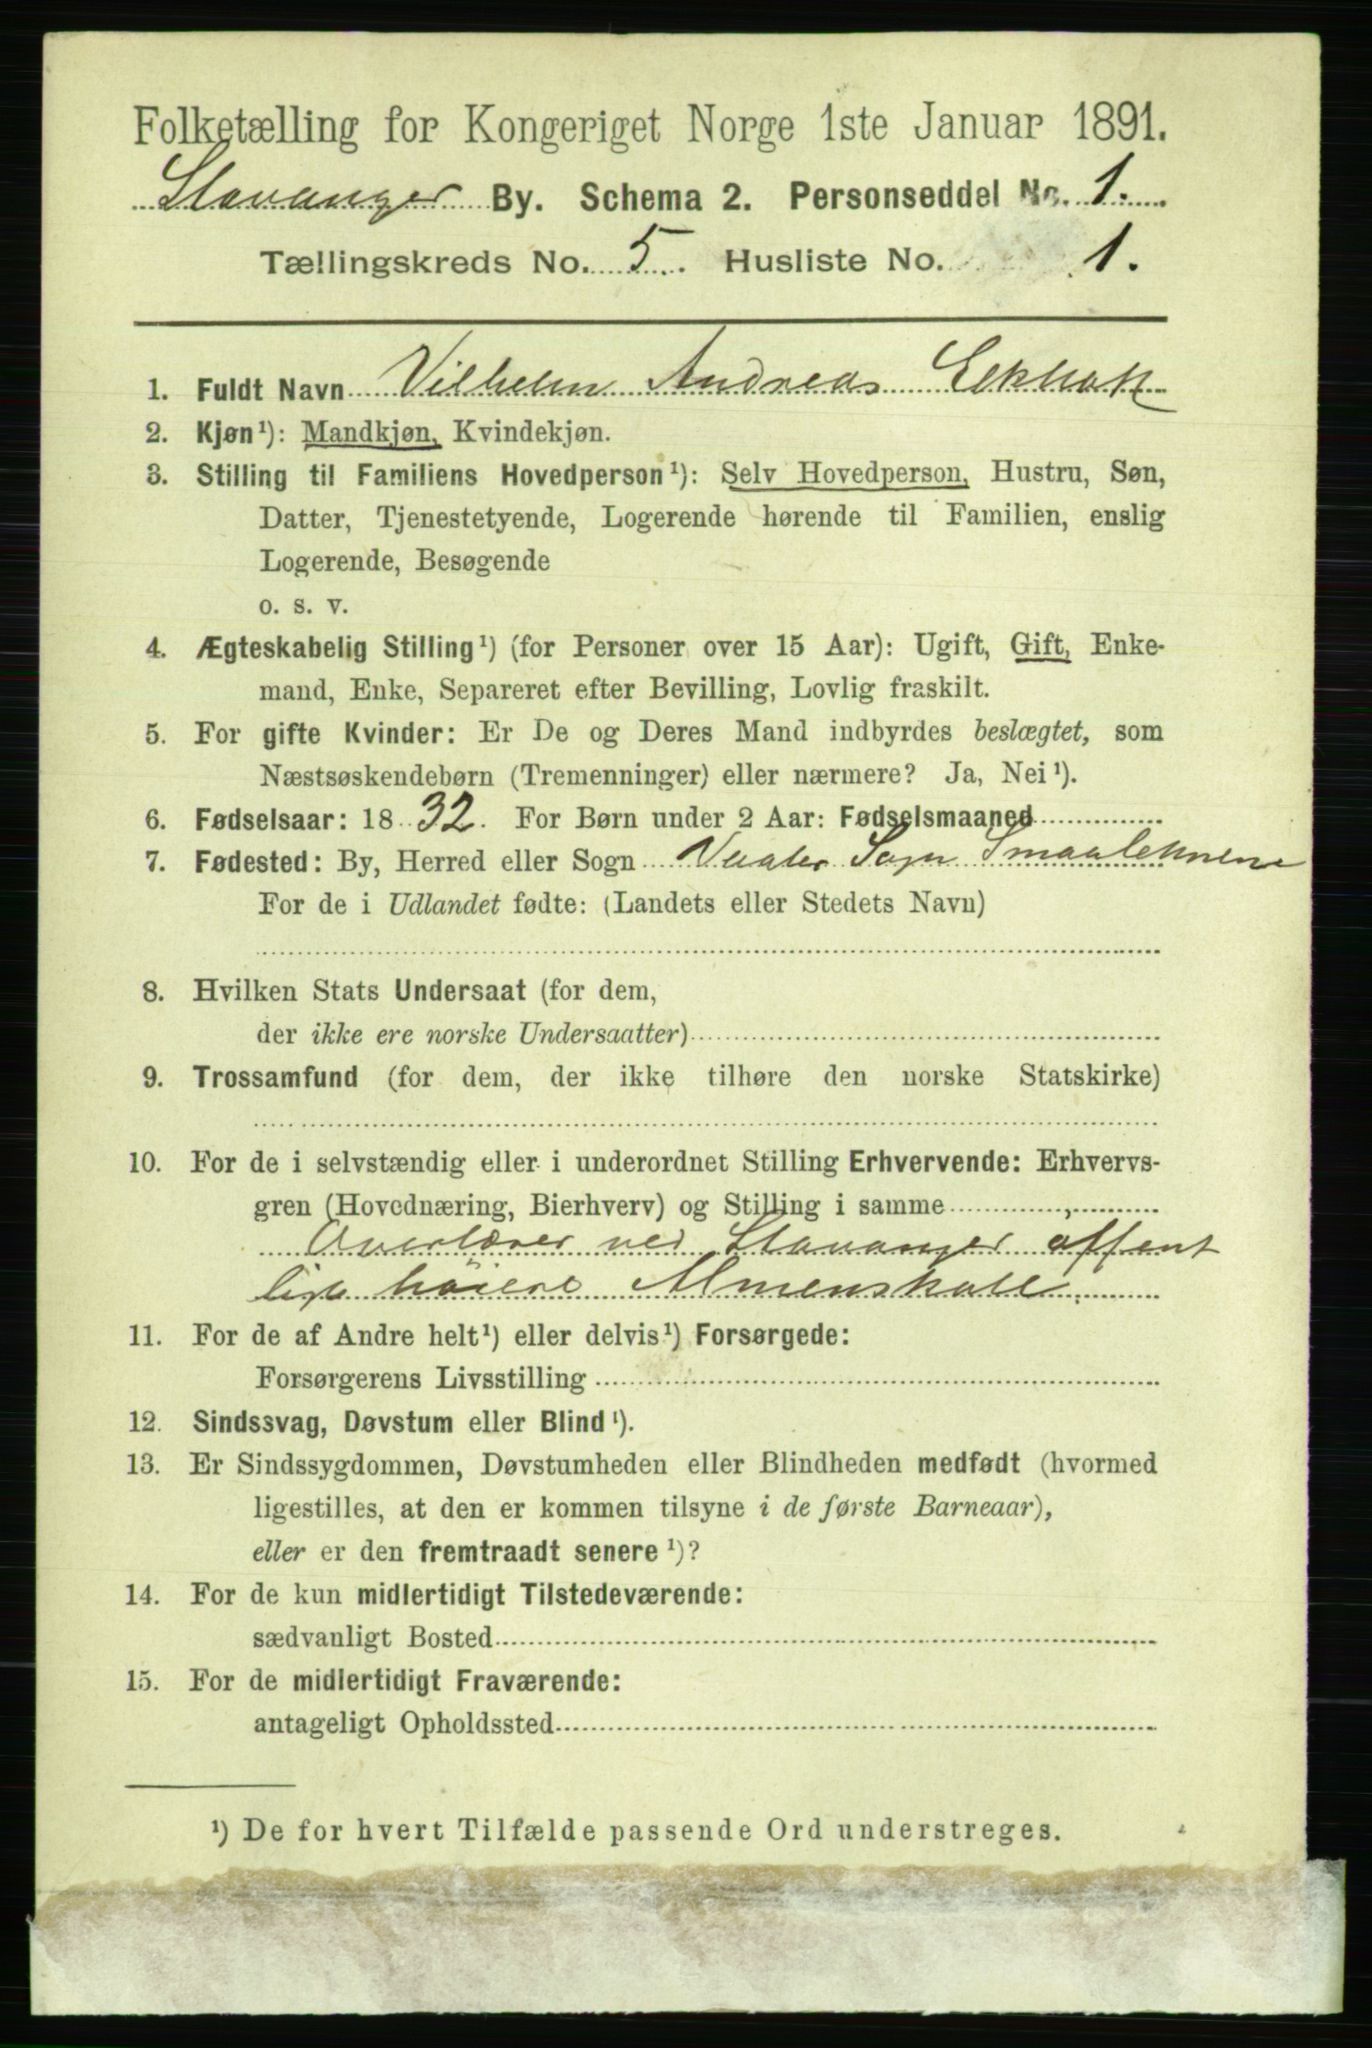 Folketælling for Kongeriget Norge 1ste Januar 1891.
Stavanger By. Schema 2. Personseddel No. 1.
Tællingskreds No. 5. Husliste No. 1.
1. Fuldt Navn Vilhelm Andreas Eckhoff
2. Kjøn¹): Mandkjøn, Kvindekjøn.
3. Stilling til Familiens Hovedperson¹): Selv Hovedperson, Hustru, Søn,
Datter, Tjenestetyende, Logerende hørende til Familien, enslig
Logerende, Besøgende
o. s. v.
4. Ægteskabelig Stilling¹) (for Personer over 15 Aar): Ugift, Gift, Enke-
mand, Enke, Separeret efter Bevilling, Lovlig fraskilt.
5. For gifte Kvinder: Er De og Deres Mand indbyrdes beslægtet, som
Næstsøskendebørn (Tremenninger) eller nærmere? Ja, Nei¹).
6. Fødselsaar: 1832. For Børn under 2 Aar: Fødselsmaaned
7. Fødested: By, Herred eller Sogn Vaaler Sogn Smaalehnene
For de i Udlandet fødte: (Landets eller Stedets Navn)
8. Hvilken Stats Undersaat (for dem,
der ikke ere norske Undersaatter)
9. Trossamfund (for dem, der ikke tilhøre den norske Statskirke)
10. For de i selvstændig eller i underordnet Stilling Erhvervende: Erhvervs-
gren (Hovednæring, Bierhverv) og Stilling i samme
Overlærer ved Stavanger offent
lige høiere Almenskole.
11. For de af Andre helt¹) eller delvis¹) Forsørgede:
Forsørgerens Livsstilling
12. Sindssvag, Døvstum eller Blind¹).
13. Er Sindssygdommen, Døvstumheden eller Blindheden medfødt (hvormed
ligestilles, at den er kommen tilsyne i de første Barneaar),
eller er den fremtraadt senere¹)?
14. For de kun midlertidigt Tilstedeværende:
sædvanligt Bosted
15. For de midlertidigt Fraværende:
antageligt Opholdssted
¹) De for hvert Tilfælde passende Ord understreges.